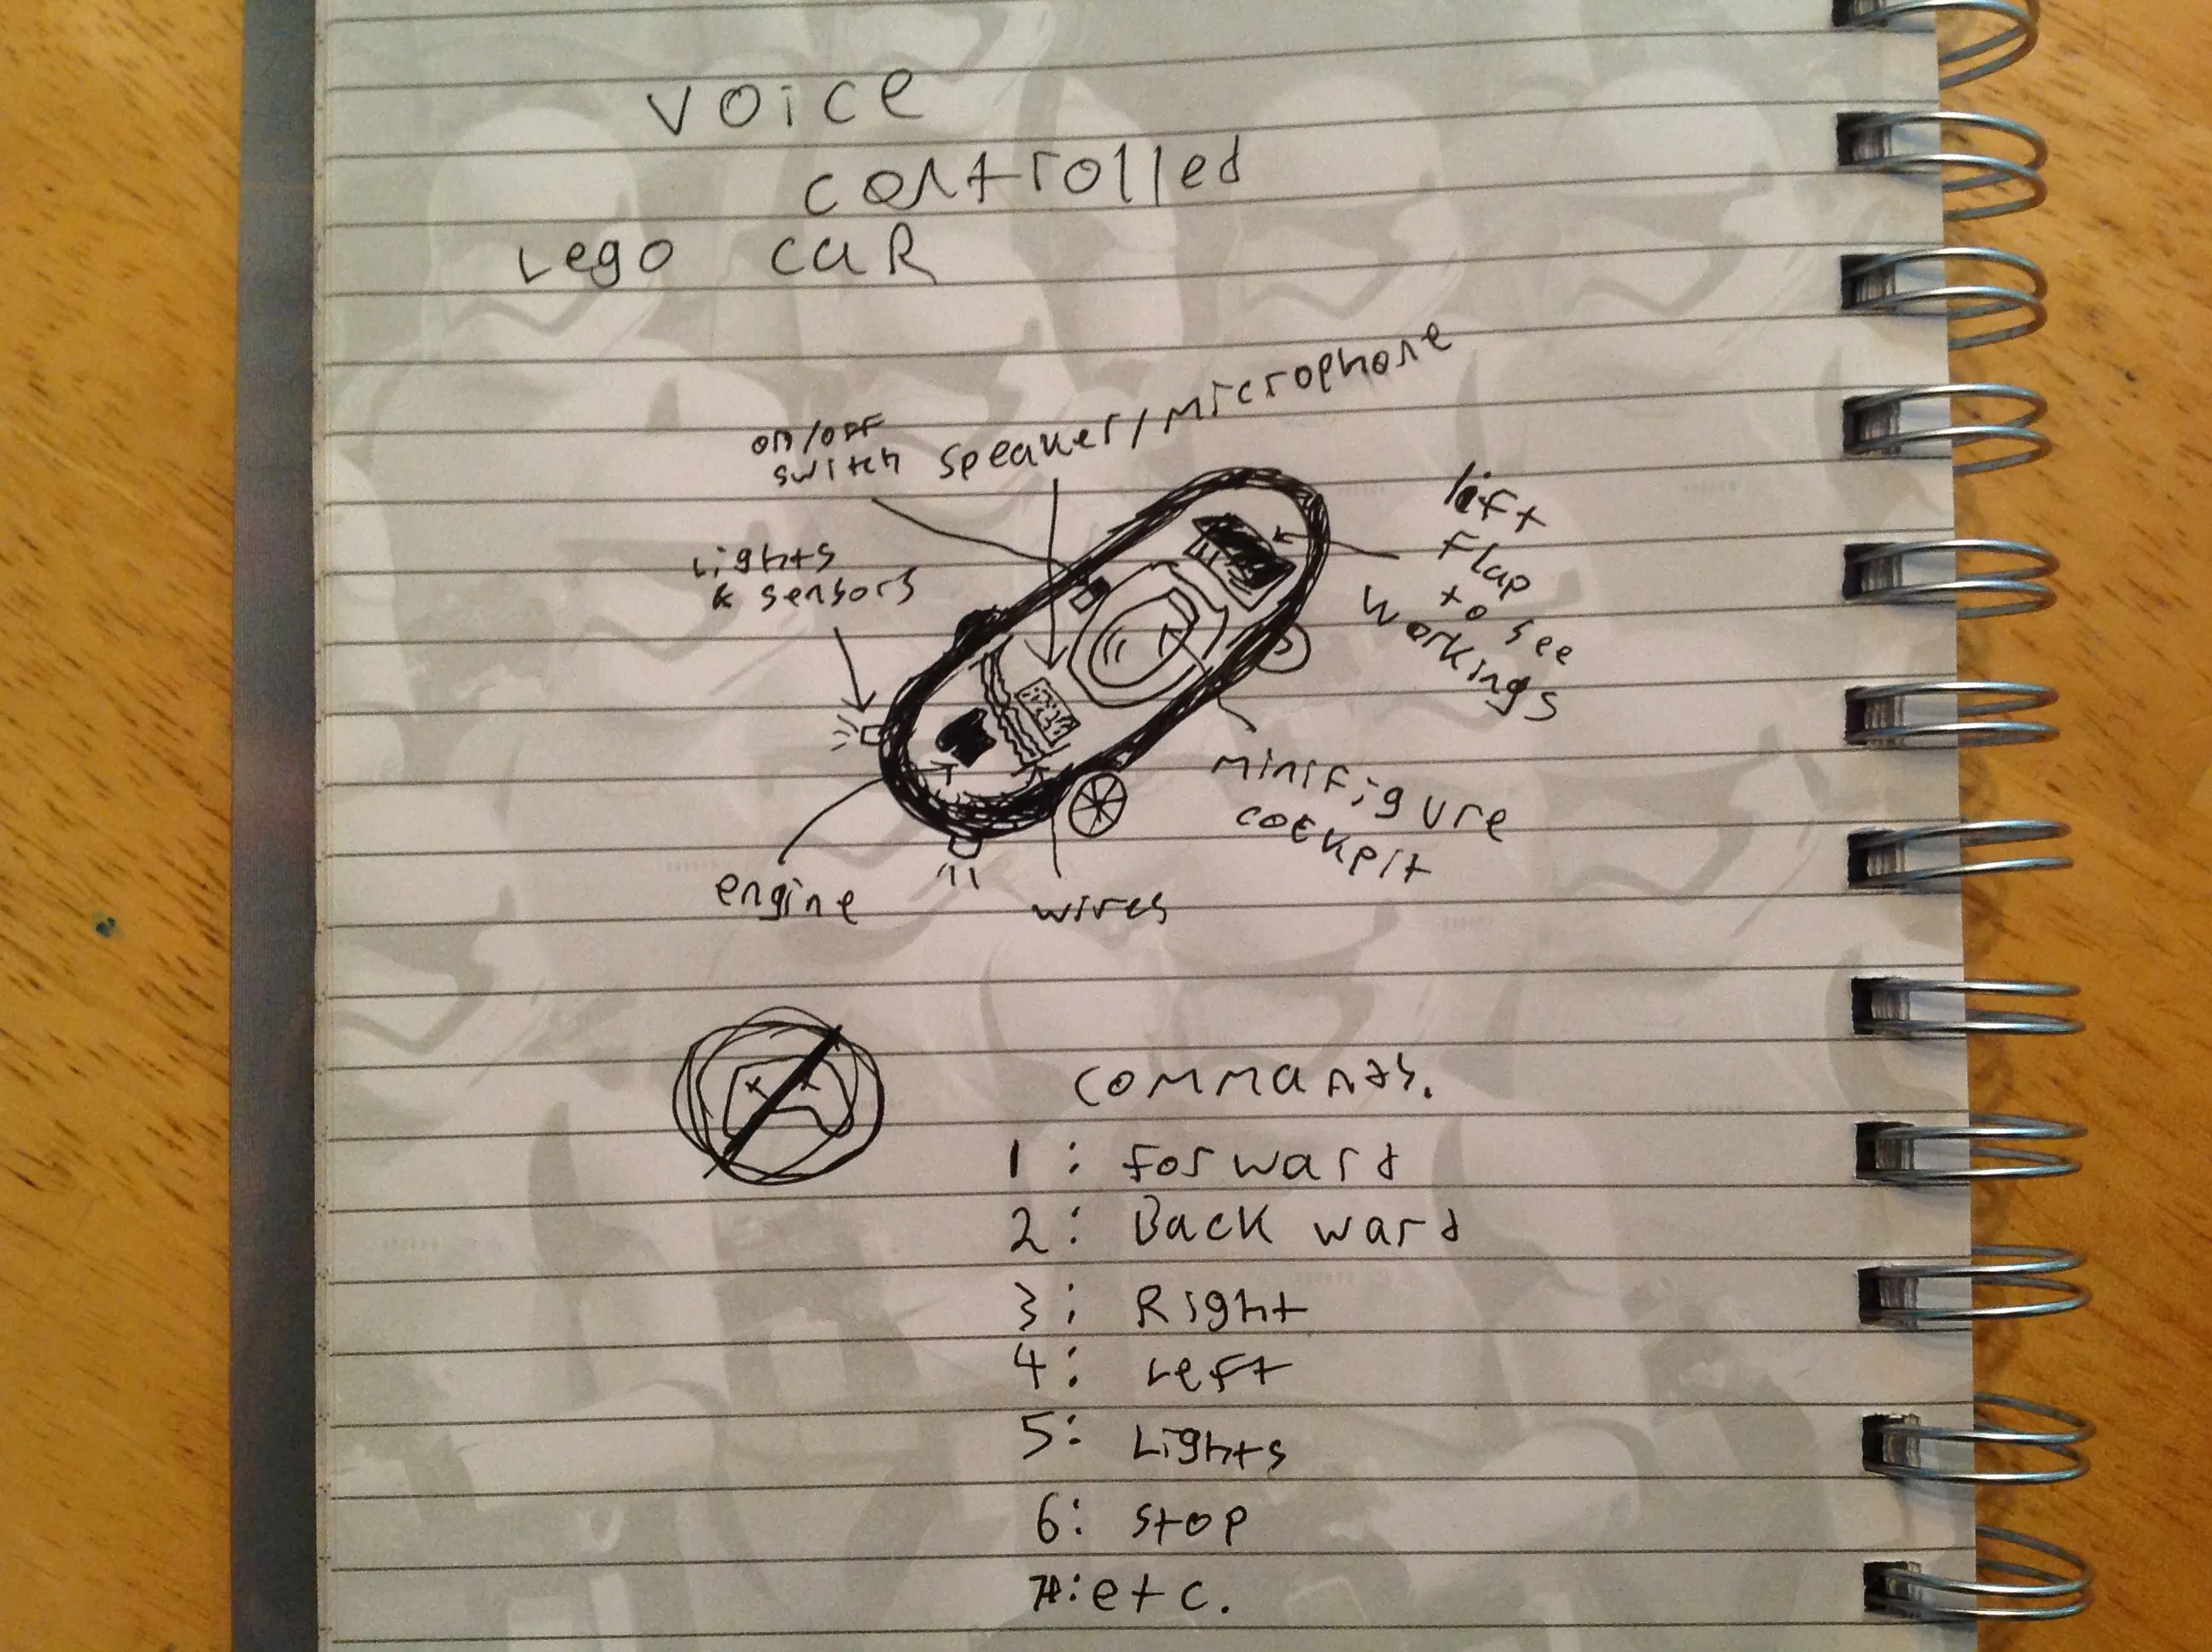 VOICE
controlled
Lego caR
on/off
switch
speaker/microphone
Lights
& sensors
lift
flap
to see
workings
minifigure
cockpit
engine
wires
commands.
1: forward
2: Back ward
3: Right
4: Left
5: Lights
6: stop
7: etc.